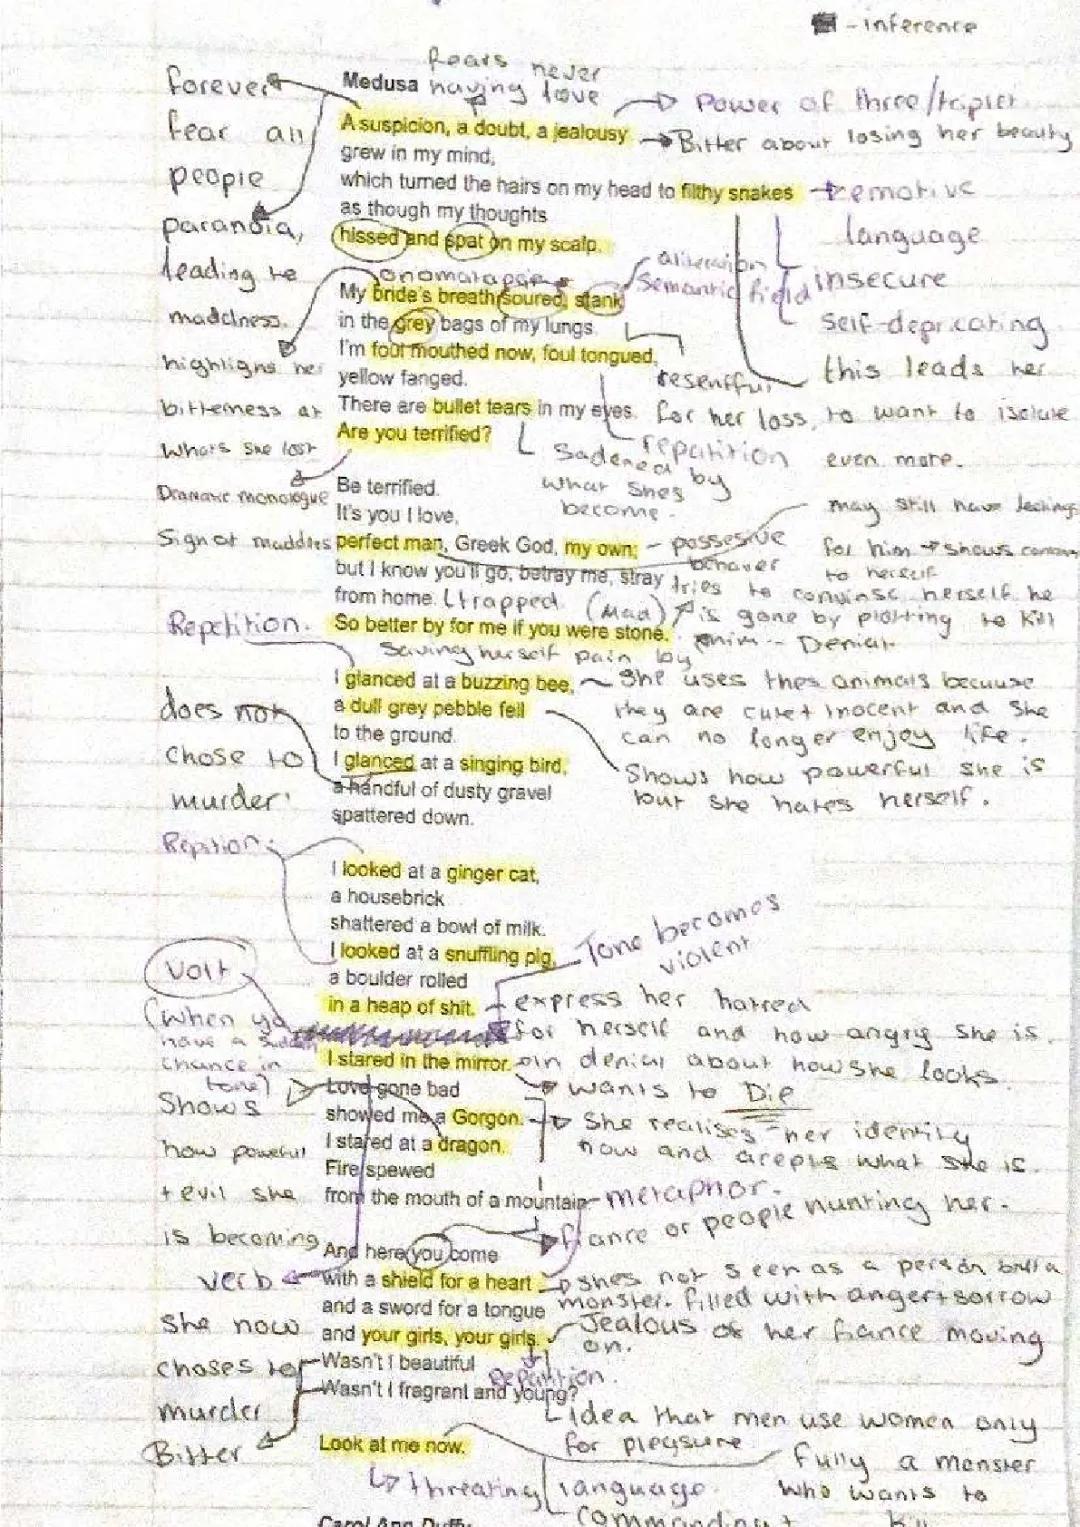 - inference
fears never
Medusa having love
forever
fear all
people
paranoia,
leading to
madness.
→ Power of three/triplet
A suspicion, a doubt, a jealousy → Bitter about losing her beauty
grew in my mind,
which turned the hairs on my head to filthy snakes → emotive
language
as though my thoughts
hissed and spat on my scalp.
onomatapoie
aliteration
semantic field
insecure
self-depricating
this leads her
to want to isolate
even more.
My bride's breath soured, stank
in the grey bags of my lungs.
I'm foul mouthed now, foul tongued,
yellow fanged.
resentful
for her loss,
highlighs her
bitterness at
whats she lost
There are bullet tears in my eyes.
Are you terrified?
repatition
Sadened by
what shes
become.
Dramatic monologue
Be terrified.
It's you I love,
Sign of maddnes perfect man, Greek God, my own; - possesive
behaver
may still have feelings
for him → shows
to herself
but I know you'll go, betray me, stray
from home. (trapped. (Mad)
tries to convinse herself he
is gone by plotting to kill
him -- Denial
Repetition.
So better by for me if you were stone.
Saving herself pain by
I glanced at a buzzing bee, ~ She uses thes animals becuuse
they are cute + inocent and she
can no longer enjoy life.
a dull grey pebble fell
to the ground.
Shows how powerful she is
but she hates herself.
does not
chose to
murder
I glanced at a singing bird,
a handful of dusty gravel
spattered down.
Repition
I looked at a ginger cat,
a housebrick
shattered a bowl of milk.
I looked at a snuffling pig,
a boulder rolled
in a heap of shit.
Tone becomes
violent
express her hatred
for herself and how angry she is.
Volt
(when yo
have a sudden
chance in
tone)
I stared in the mirror. in denial about how she looks.
Love gone bad → wants to Die
showed me a Gorgon. → She realises her identity
now and accepts what she is.
I stared at a dragon.
Fire spewed
from the mouth of a mountain. metaphor.
Shows
how powerful
+ evil she
is becoming
verb
fiance or people hunting her.
And here you come
with a shield for a heart → shes not seen as a person but a
monster. filled with anger + sorrow
and a sword for a tongue
and your girls, your girls. Jealous of her fiance moving
on.
Repatition.
she now
choses to
murder
Bitter
Wasn't I beautiful
Wasn't I fragrant and young?
Idea that men use women only
for pleasure
Look at me now.
↳ threating language.
fully a monster
who wants to
Carol Ann Duffy